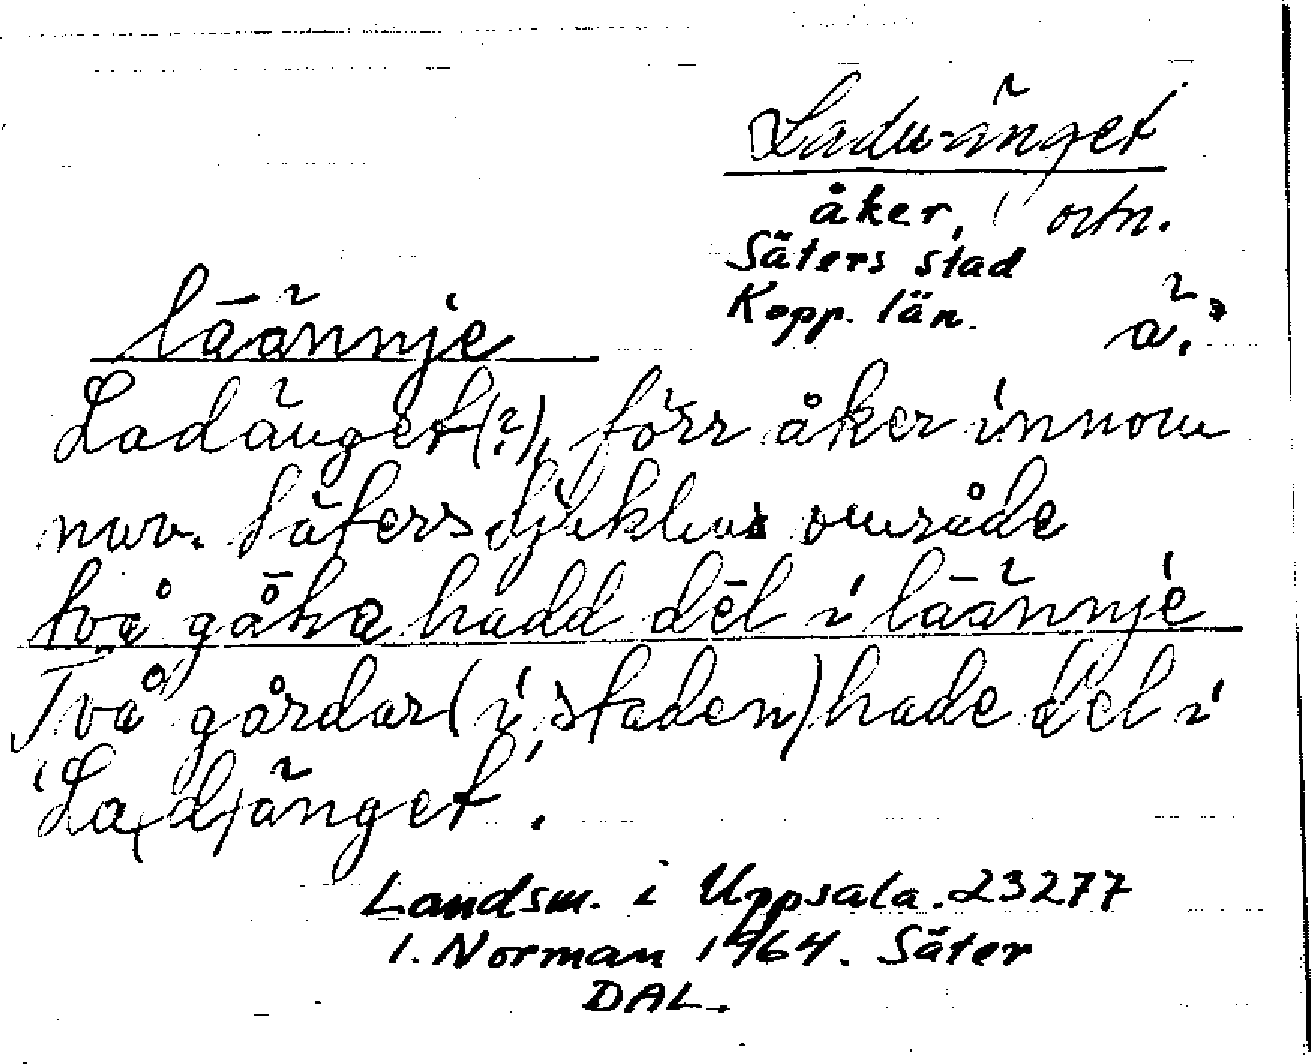 Ladu-änget
åker, ortn.
Säters stad
Kopp. län.
ä.
lāännje
Ladänget(?), förr åker innom
nuv. Säters sjukhus område
två gåka hadd dēl i lāännje
Två gårdar (i staden) hade del i
'La(d)änget'.
Landsm. i Uppsala. 23277
I. Norman 1964. Säter
DAL.